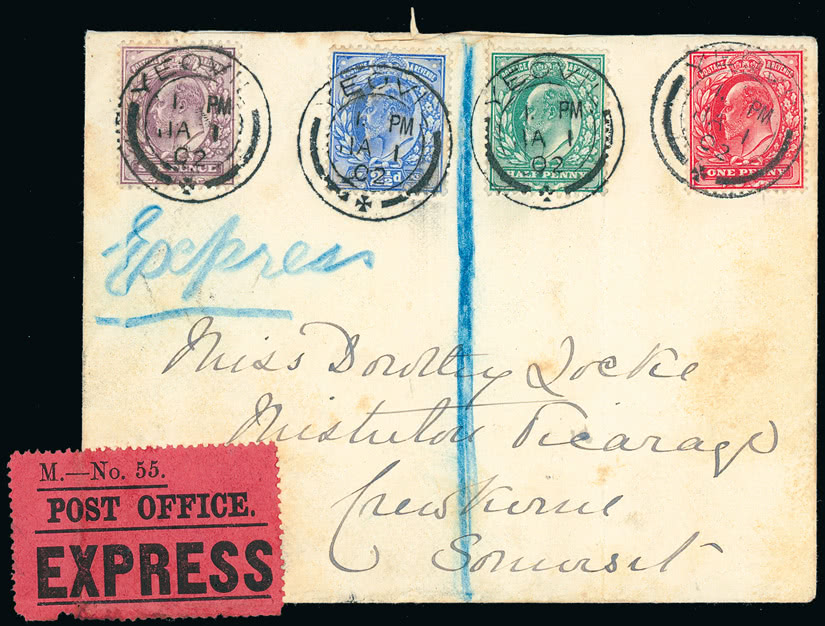 YEOVIL YEOVIL YEOVIL
1. PM 1. PM 1. PM 1 PM
JA 1 JA 1 JA 1 JA 1
02 02 02 02
POSTAGE & REVENUE POSTAGE & REVENUE POSTAGE & REVENUE
PENCE 2½d HALF PENNY ONE PENNY
Express
Miss Dorothy Locke
Misterton Vicarage
Crewkerne
Somerset
M.—No. 55.
POST OFFICE.
EXPRESS